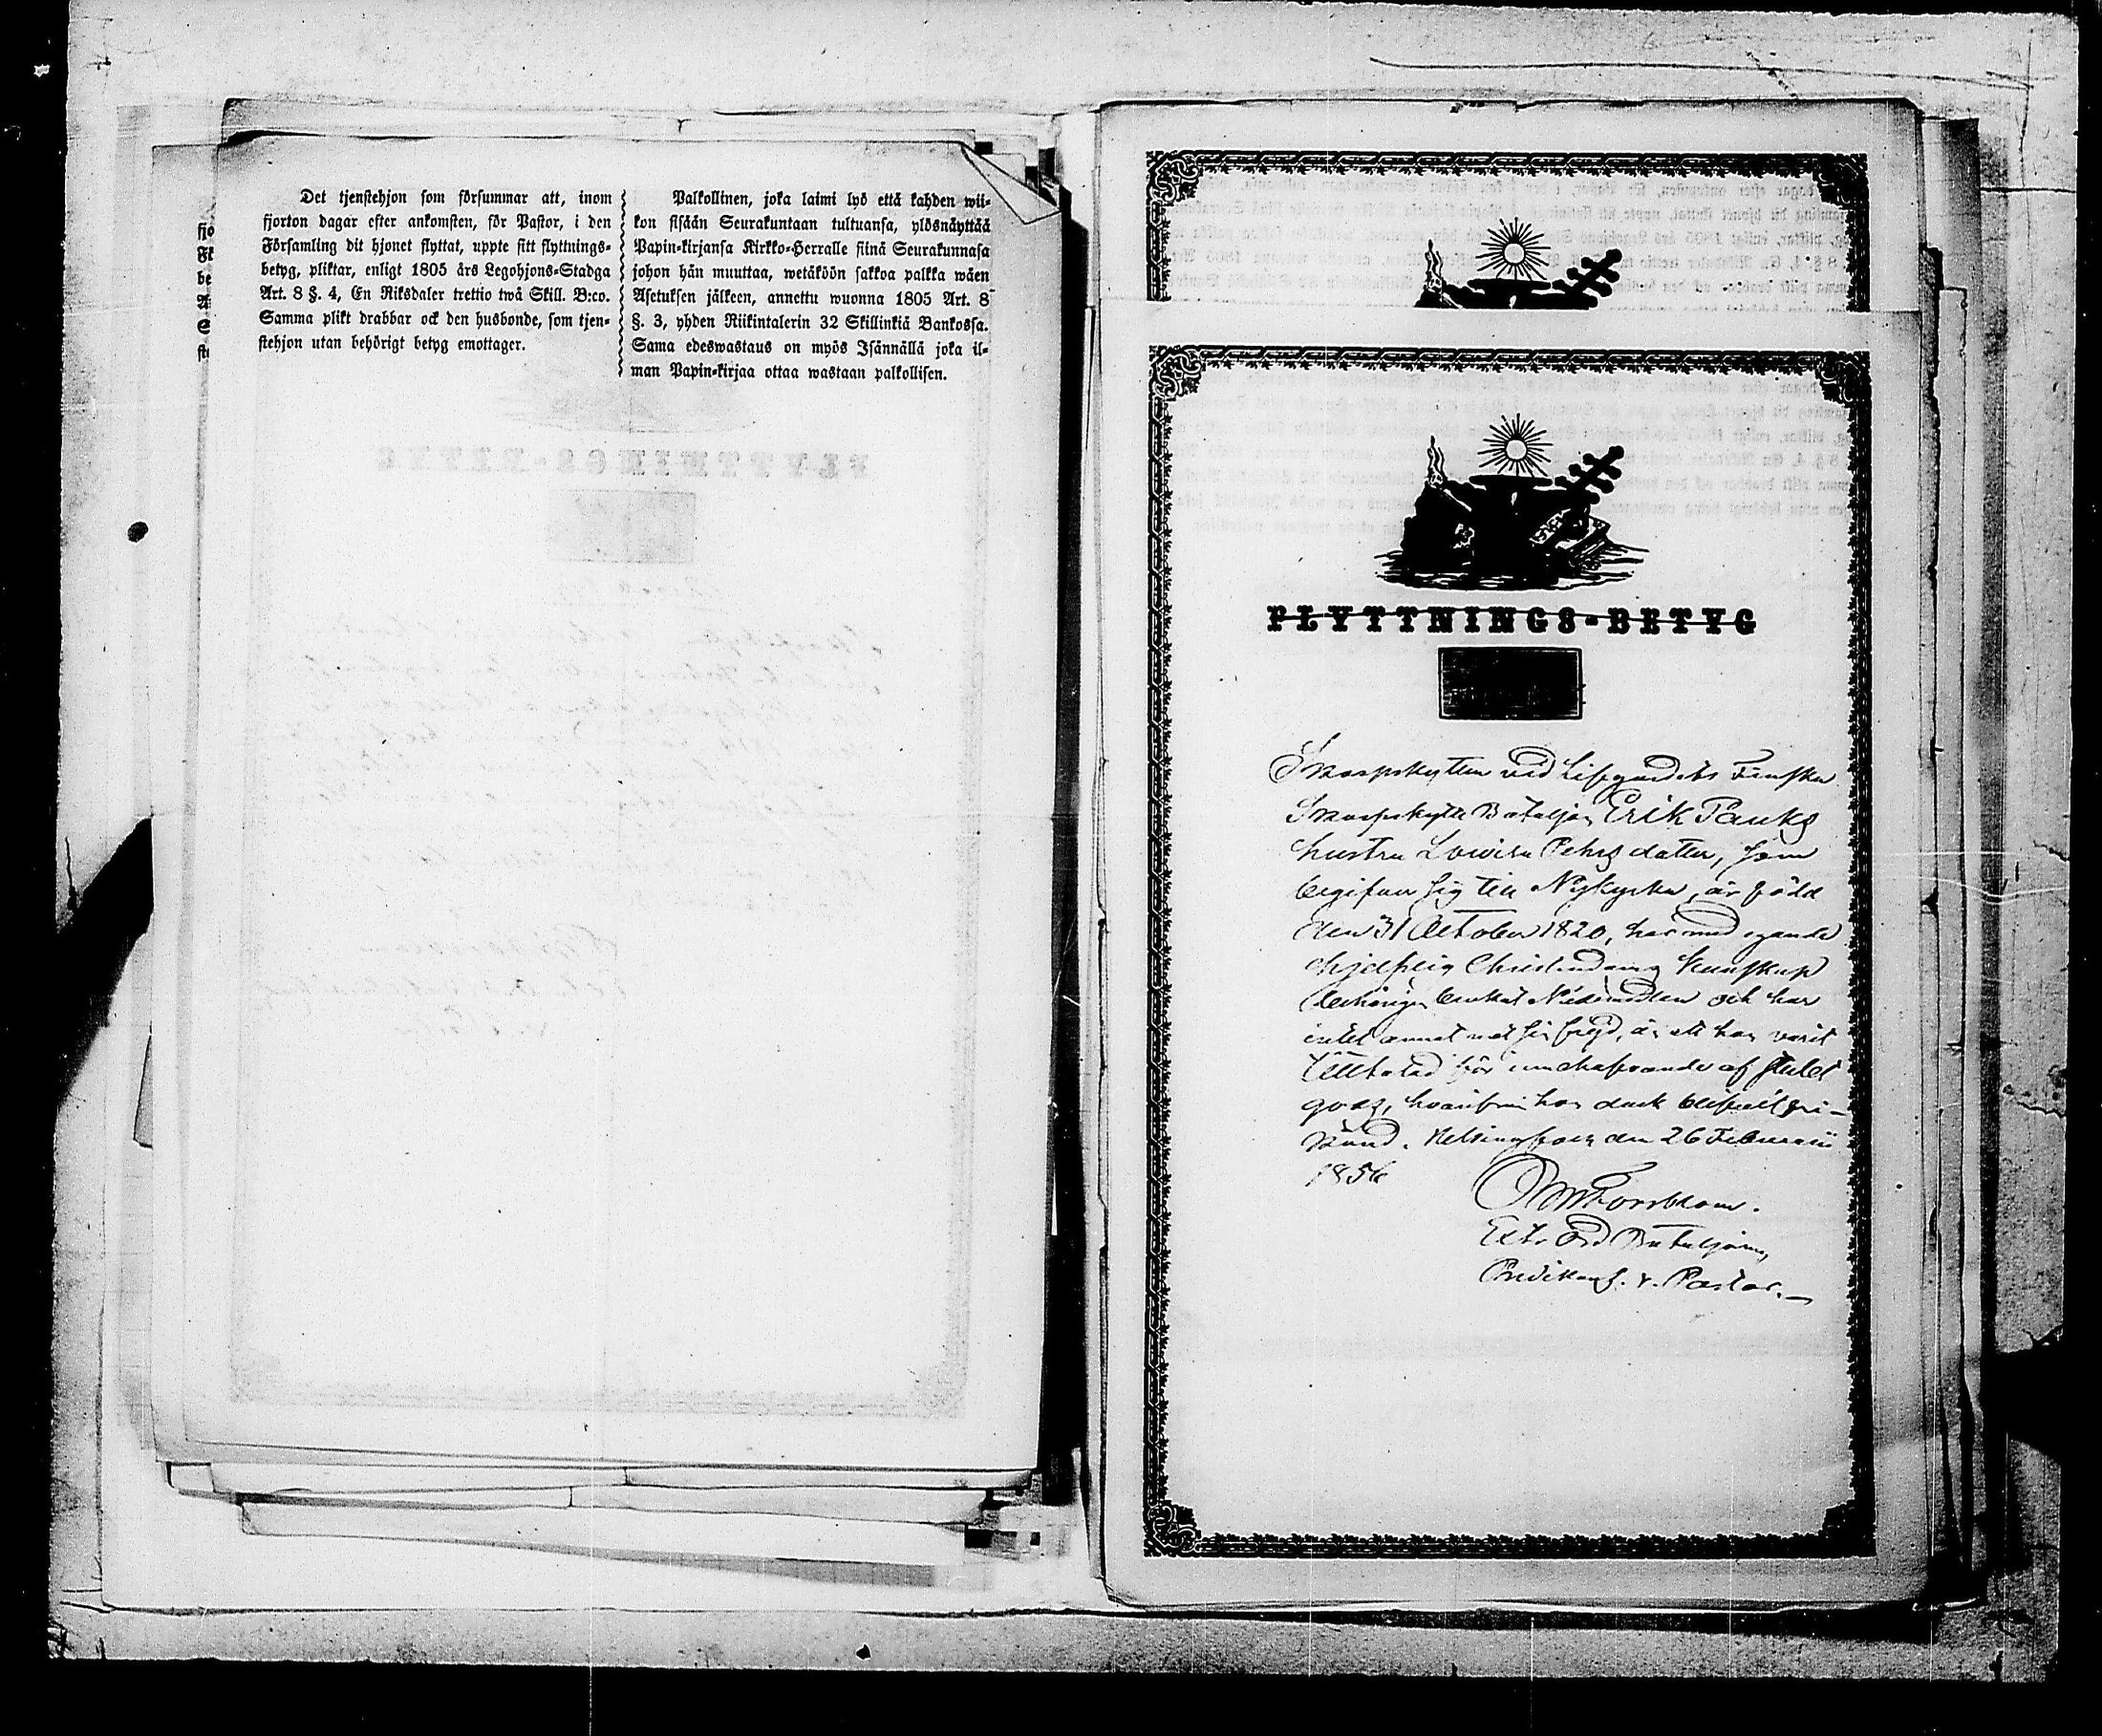 Det tjenstehjon som försummar att, inom
fjorton dagar efter ankomsten, för Pastor, i den
Församling dit hjonet flyttat, uppte sitt flyttnings-
betyg, pliktar, enligt 1805 års Legohjons-Stadga
Art. 8 §. 4, En Riksdaler trettio twå Skill. B:co.
Samma plikt drabbar ock den husbonde, som tjen-
stehjon utan behörigt betyg emottager.
Palkollinen, joka laimi lyö että kahden wii-
kon sisään Seurakuntaan tultuansa, ylösnäyttää
Papin-kirjansa Kirkko-Herralle siinä Seurakunnasa
johon hän muuttaa, wetäköön sakkoa palkka wäen
Asetuksen jälkeen, annettu wuonna 1805 Art. 8
§. 3, yhden Riikintalerin 32 Skillinkiä Bankossa.
Sama edeswastaus on myös Isännällä joka il-
man Papin-kirjaa ottaa wastaan palkollisen.
FLYTTNINGS-BETYG
Skarpskytten vid Lifgardets Finska
Skarpskytte Bataljon Erik Panks
hustru Lovisa Pehrsdotter, som
begifver sig till Nykyrka, är född
den 31 October 1820, har med egande
hjelplig Christendoms kunskap
behörigen brukat Nådemedlen och har
intet annat mot sin frejd, än att hon varit
tilltalad för innehafvande af stulet
gods, hvarifrån hon dock blifvit fri-
känd. Helsingfors den 26 Februarii
1856
Forsblom.
Extr. Ord Bataljons
Predikant. v. Pastor.